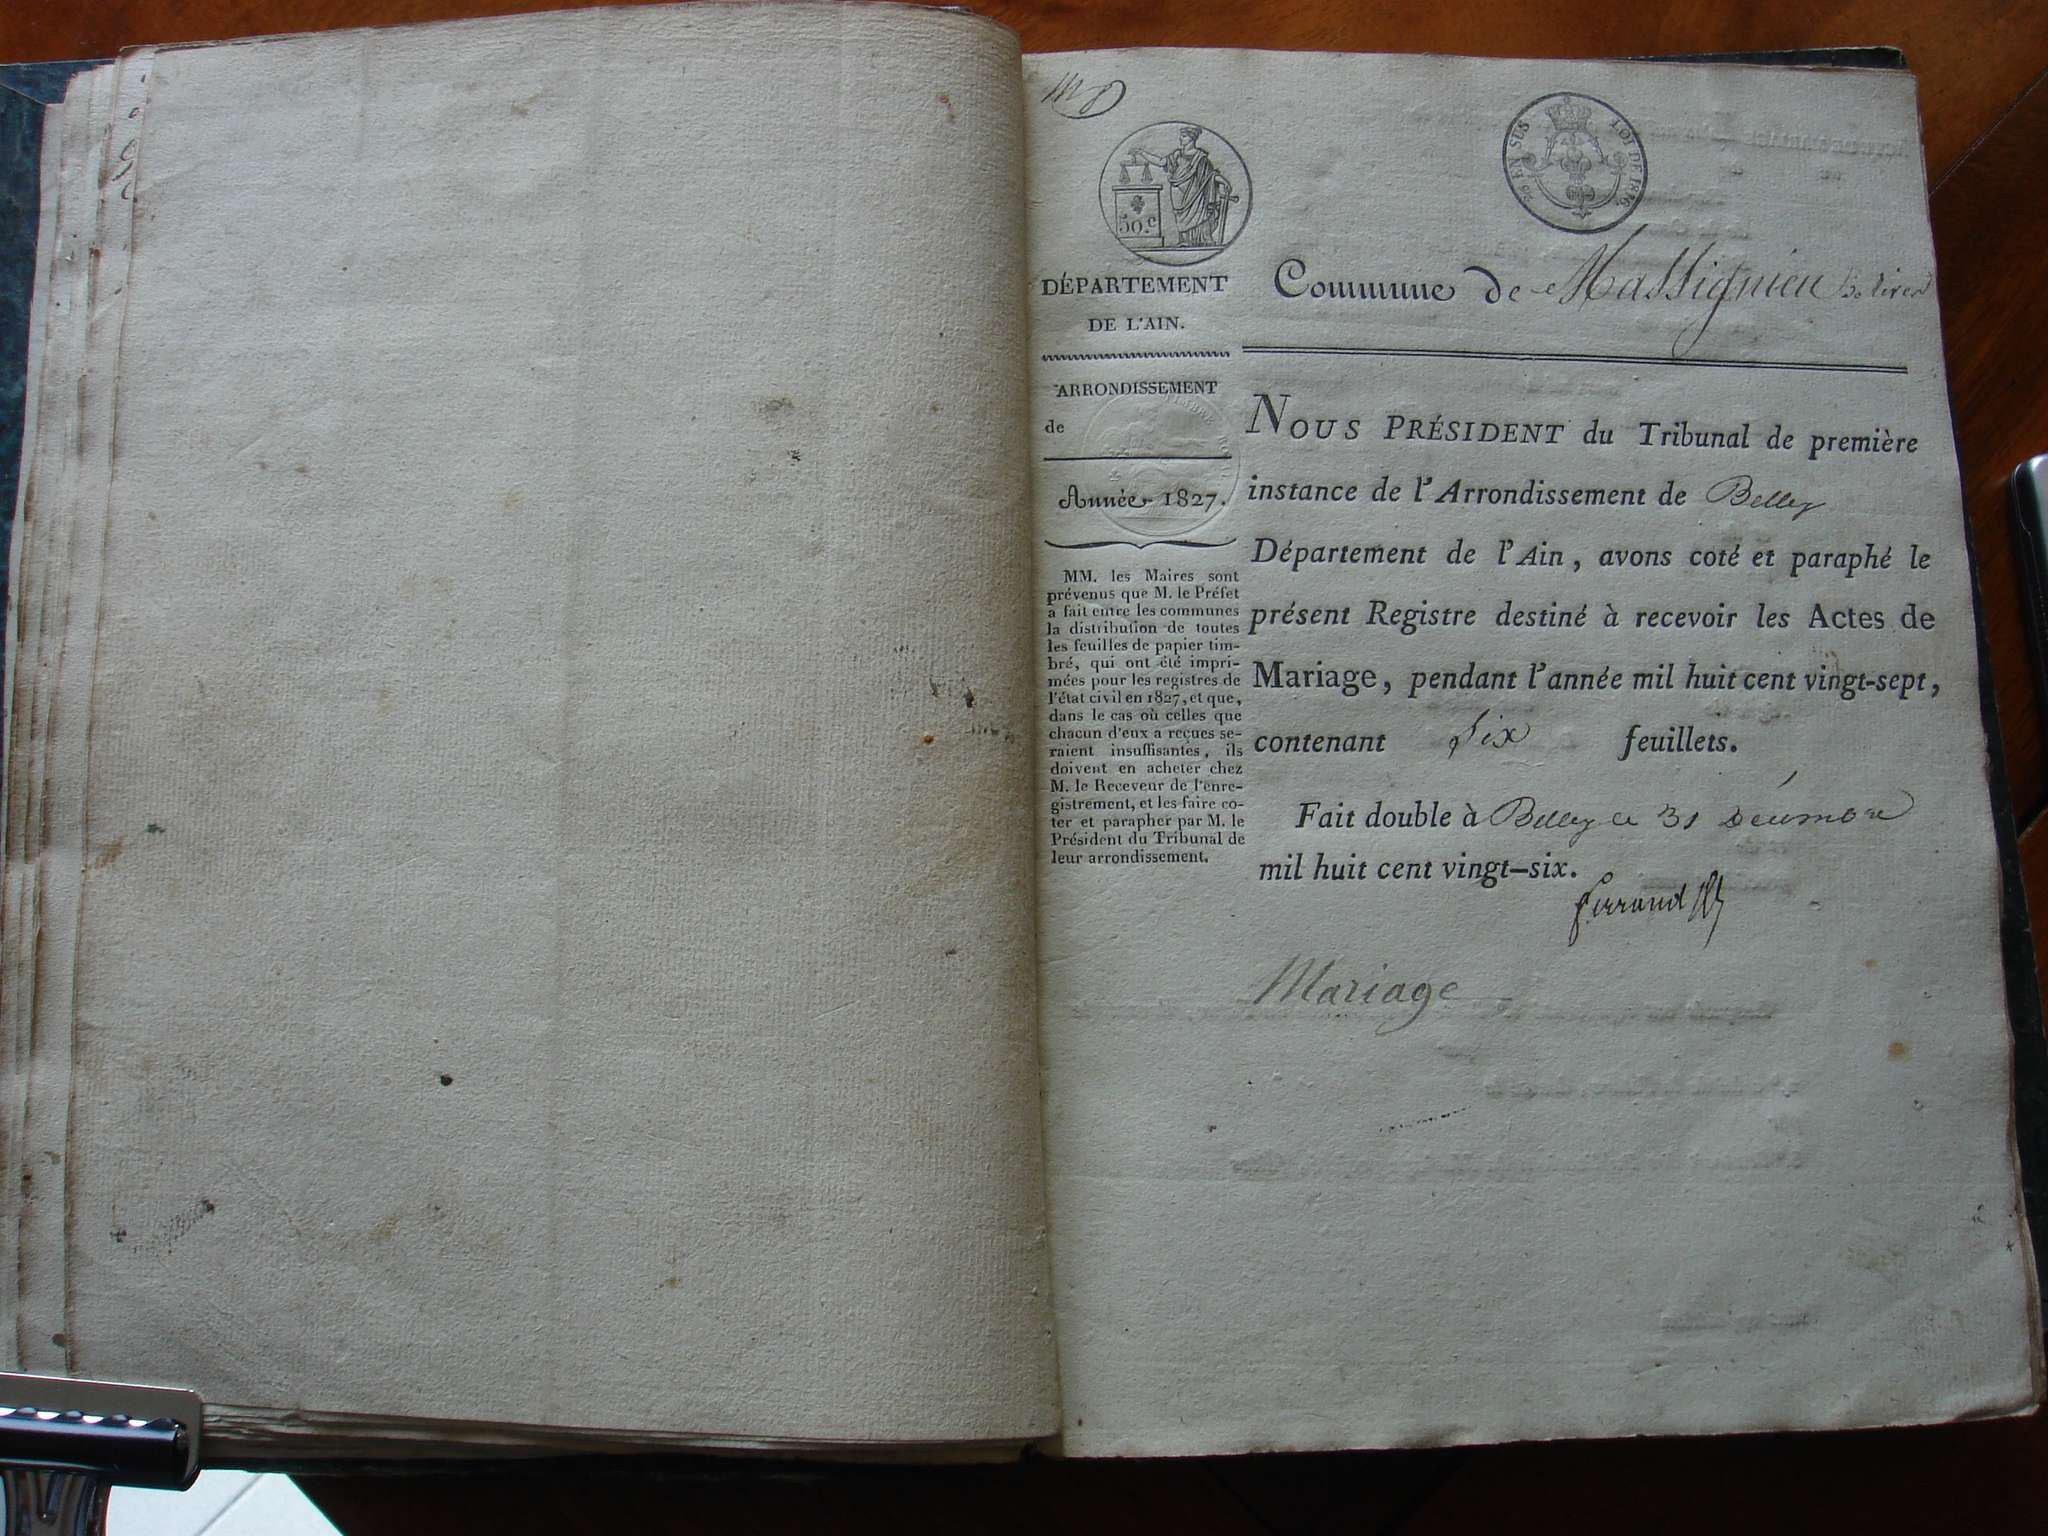 50 c
25 EN SUS LOI DE 1816
DÉPARTEMENT
DE L'AIN.
Commune de Massignieu de rives
ARRONDISSEMENT
de
Année 1827.
MM. les Maires sont
prévenus que M. le Préfet
a fait entre les communes
la distribution de toutes
les feuilles de papier tim-
bré, qui ont été impri-
mées pour les registres de
l'état civil en 1827, et que,
dans le cas où celles que
chacun d'eux a reçues se-
raient insuffisantes, ils
doivent en acheter chez
M. le Receveur de l'enre-
gistrement, et les faire co-
ter et parapher par M. le
Président du Tribunal de
leur arrondissement.
NOUS PRÉSIDENT du Tribunal de première
instance de l'Arrondissement de Belley
Département de l'Ain, avons coté et paraphé le
présent Registre destiné à recevoir les Actes de
Mariage, pendant l'année mil huit cent vingt-sept,
contenant six feuillets.
Fait double à Belley le 31 Décembre
mil huit cent vingt-six.
Mariage